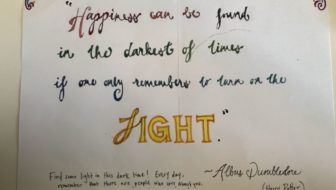 "Happiness can be found
in the darkest of times
if one only remembers to turn on the
LIGHT."
~Albus Dumbledore
(Harry Potter)
Find some light in this dark time! Every day,
remember that there are people who care about you.